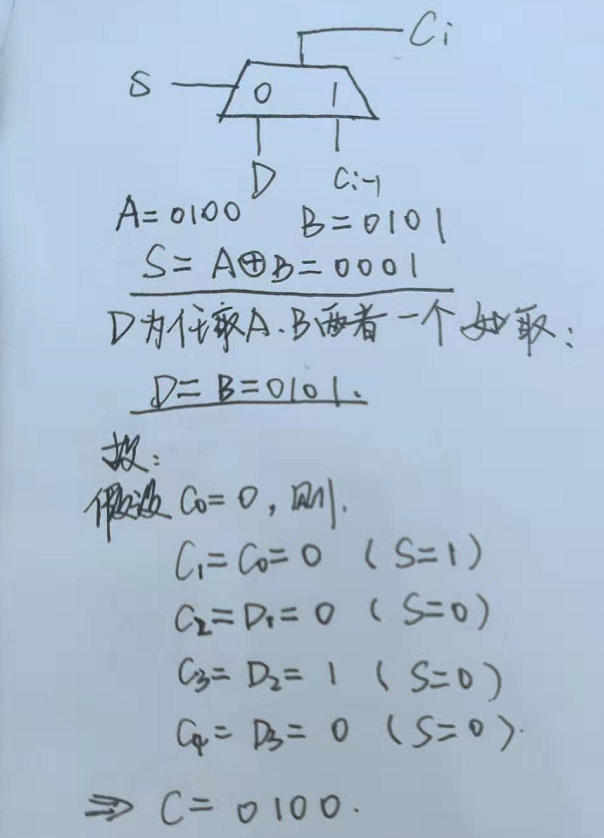 Ci
S 0 1
D Ci-1
A=0100 B=0101
S=A⊕B=0001
D为任取A.B两者一个 如取:
D=B=0101.
故:
假设 C₀=0, 则.
C₁=C₀=0 (S=1)
C₂=D₁=0 (S=0)
C₃=D₂=1 (S=0)
C₄=D₃=0 (S=0).
⇒ C=0100.